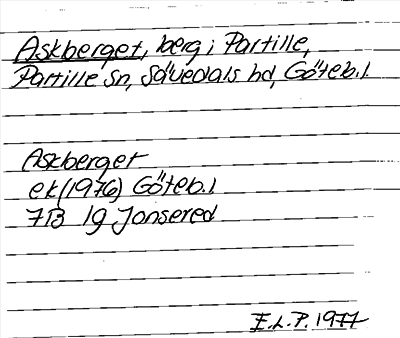 Askberget, berg i Partille,
Partille sn, Sävedals hd, Göteb. l.
Askberget
ek (1976) Göteb. l
7B 1g Jonsered
E.L.P. 1977